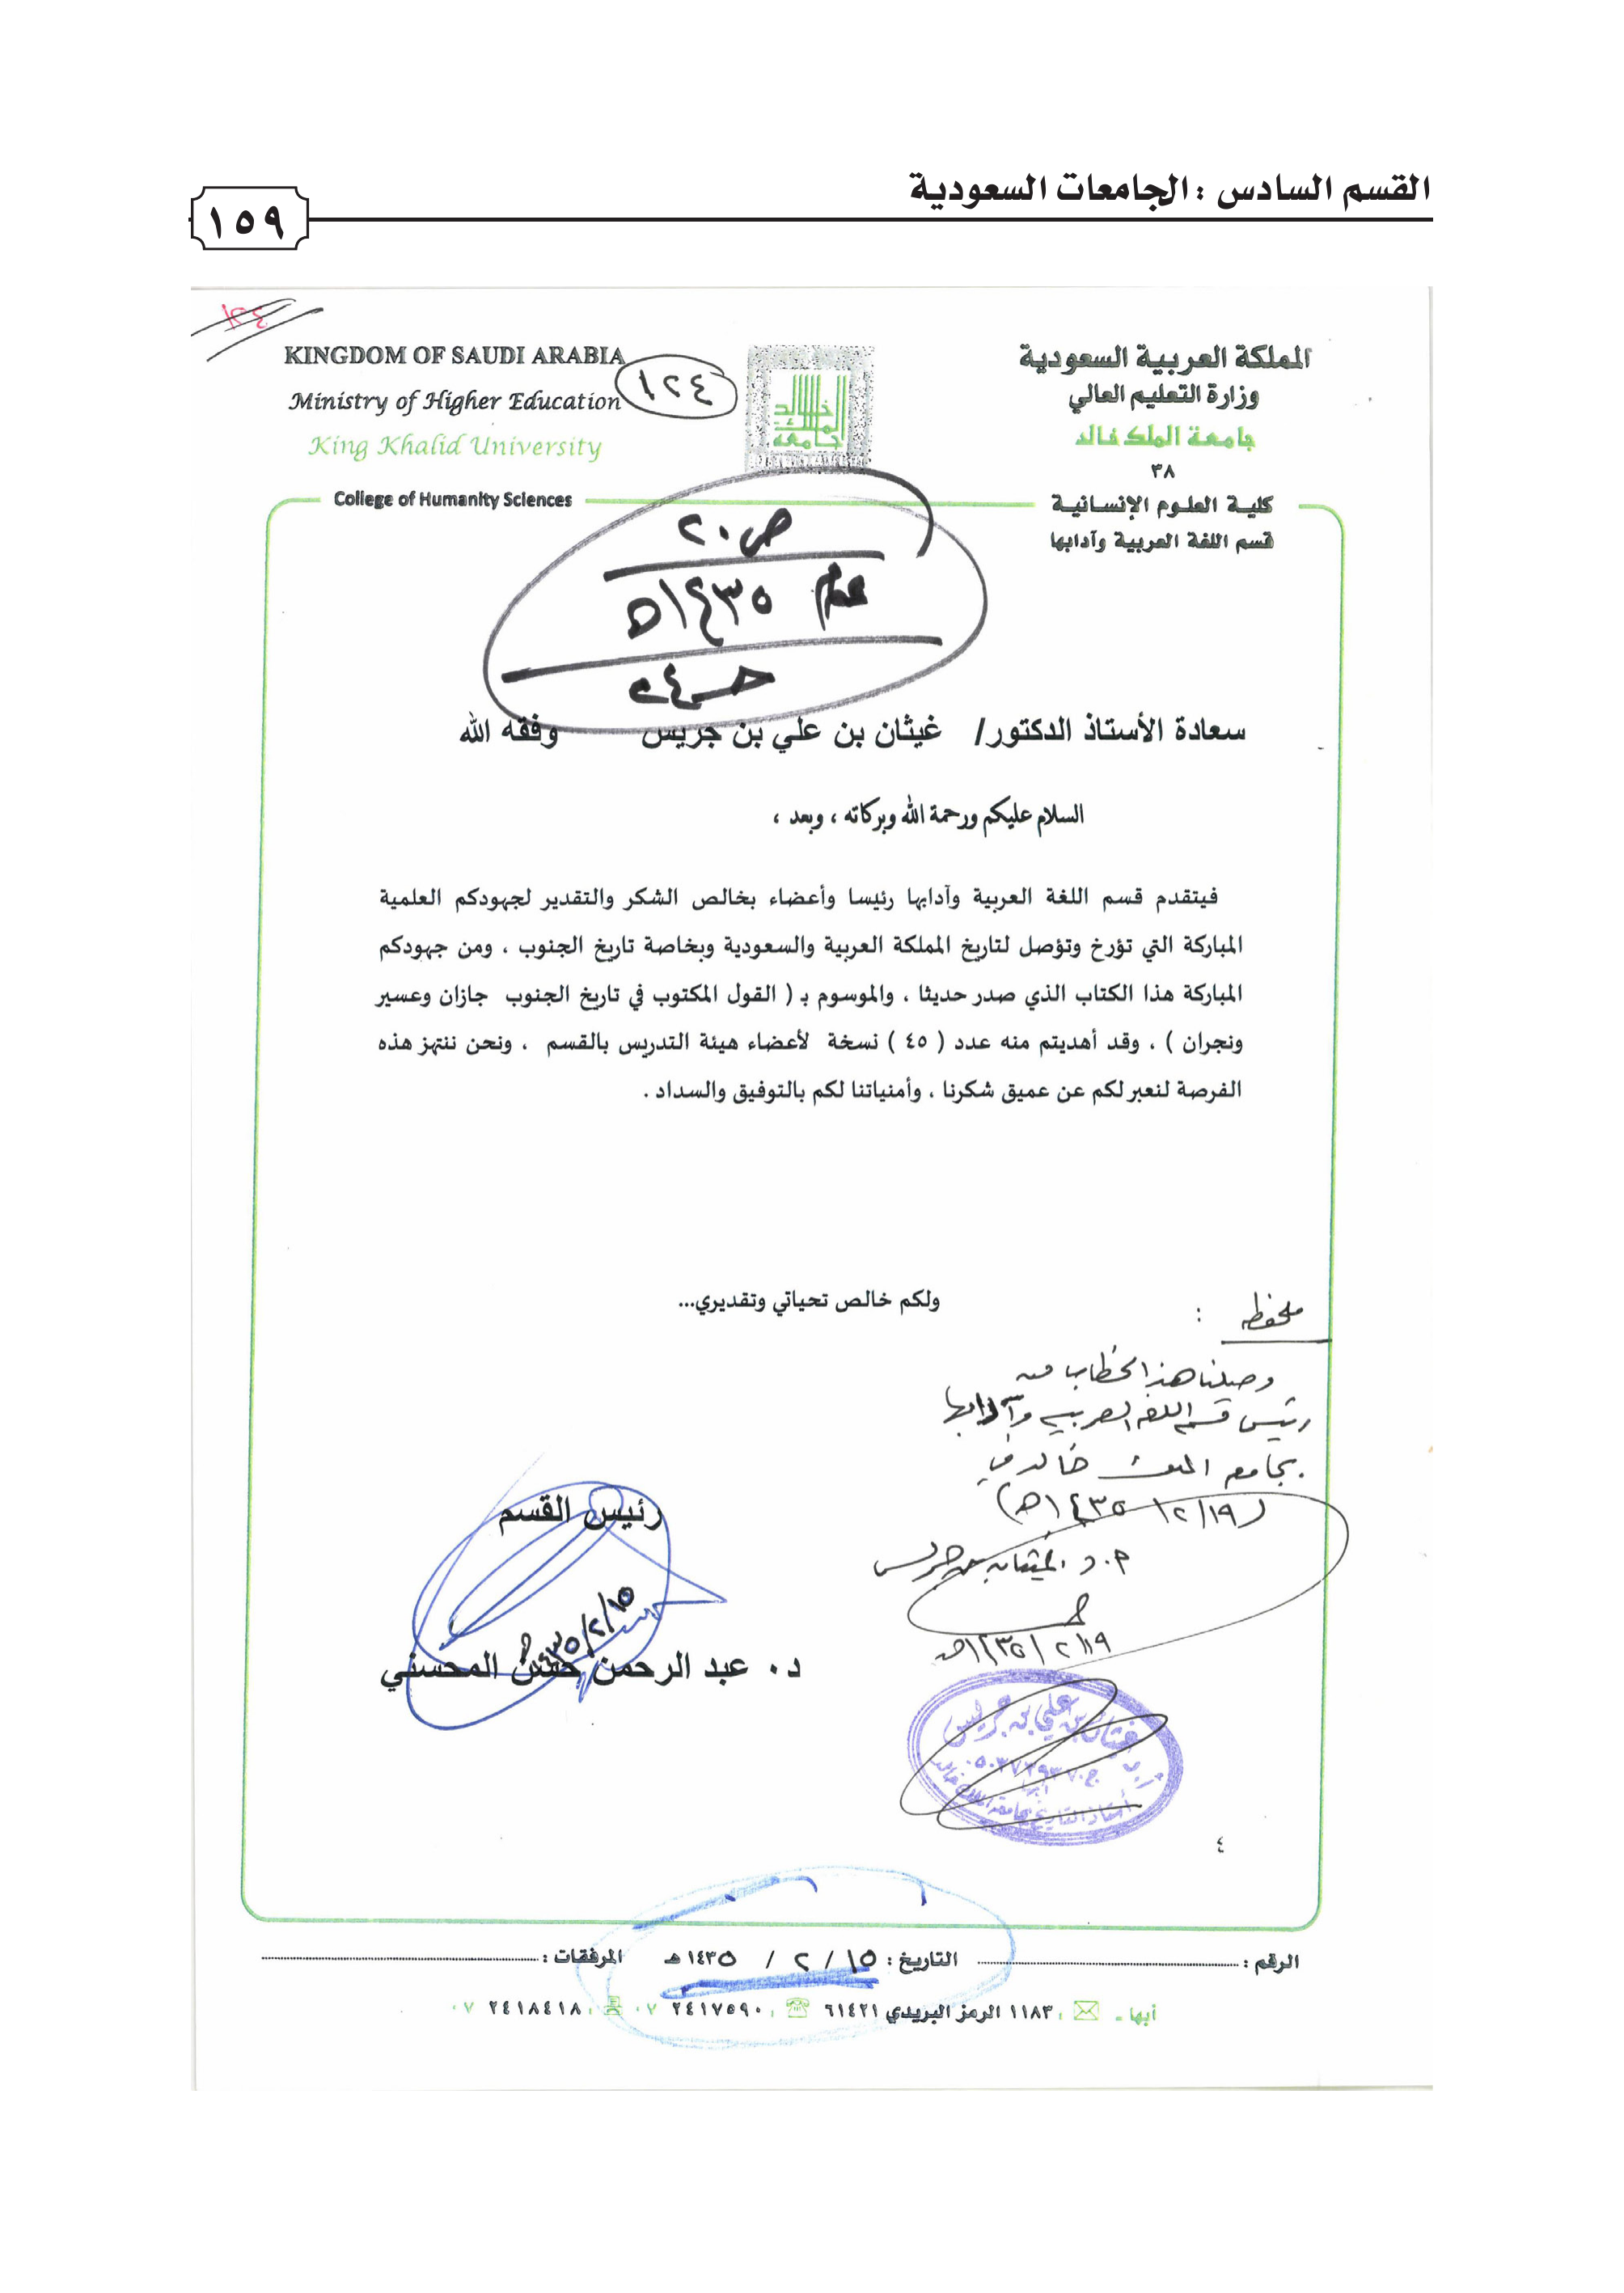 القسم السادس : الجامعات السعودية
١٥٩
المملكة العربية السعودية
وزارة التعليم العالي
جامعة الملك خالد
٣٨
كلية العلوم الإنسانية
قسم اللغة العربية وآدابها
KINGDOM OF SAUDI ARABIA
Ministry of Higher Education
King Khalid University
College of Humanity Sciences
١٢٤
ص٢٠
عام ١٤٣٥هـ
سعادة الأستاذ الدكتور/ غيثان بن علي بن جريس وفقه الله
السلام عليكم ورحمة الله وبركاته ، وبعد ،
فيتقدم قسم اللغة العربية وآدابها رئيسا وأعضاء بخالص الشكر والتقدير لجهودكم العلمية
المباركة التي تؤرخ وتؤصل لتاريخ المملكة العربية والسعودية وبخاصة تاريخ الجنوب ، ومن جهودكم
المباركة هذا الكتاب الذي صدر حديثا ، والموسوم بـ ( القول المكتوب في تاريخ الجنوب جازان وعسير
ونجران ) ، وقد أهديتم منه عدد ( ٤٥ ) نسخة لأعضاء هيئة التدريس بالقسم ، ونحن ننتهز هذه
الفرصة لنعبر لكم عن عميق شكرنا ، وأمنياتنا لكم بالتوفيق والسداد .
ولكم خالص تحياتي وتقديري...
ملحظه :
وصلنا هذا الخطاب من
رئيس قسم اللغة العربية وآدابها
بجامعة الملك خالد في
(١٤٣٥/٢/١٩هـ)
أ.د غيثان بن جريس
١٤٣٥/٢/١٩هـ
رئيس القسم
١٤٣٥/٢/١٥هـ
د. عبد الرحمن حسن المحسني
أ.د غيثان بن علي بن جريس
أستاذ التاريخ بجامعة الملك خالد
٤
الرقم : التاريخ : ١٥ / ٢ / ١٤٣٥هـ المرفقات :
أبها ـ : ١١٨٣ الرمز البريدي ٦١٤٢١ : ٢٤١٧٥٩٠ ٠٧ : ٢٤١٨٤١٨ ٠٧